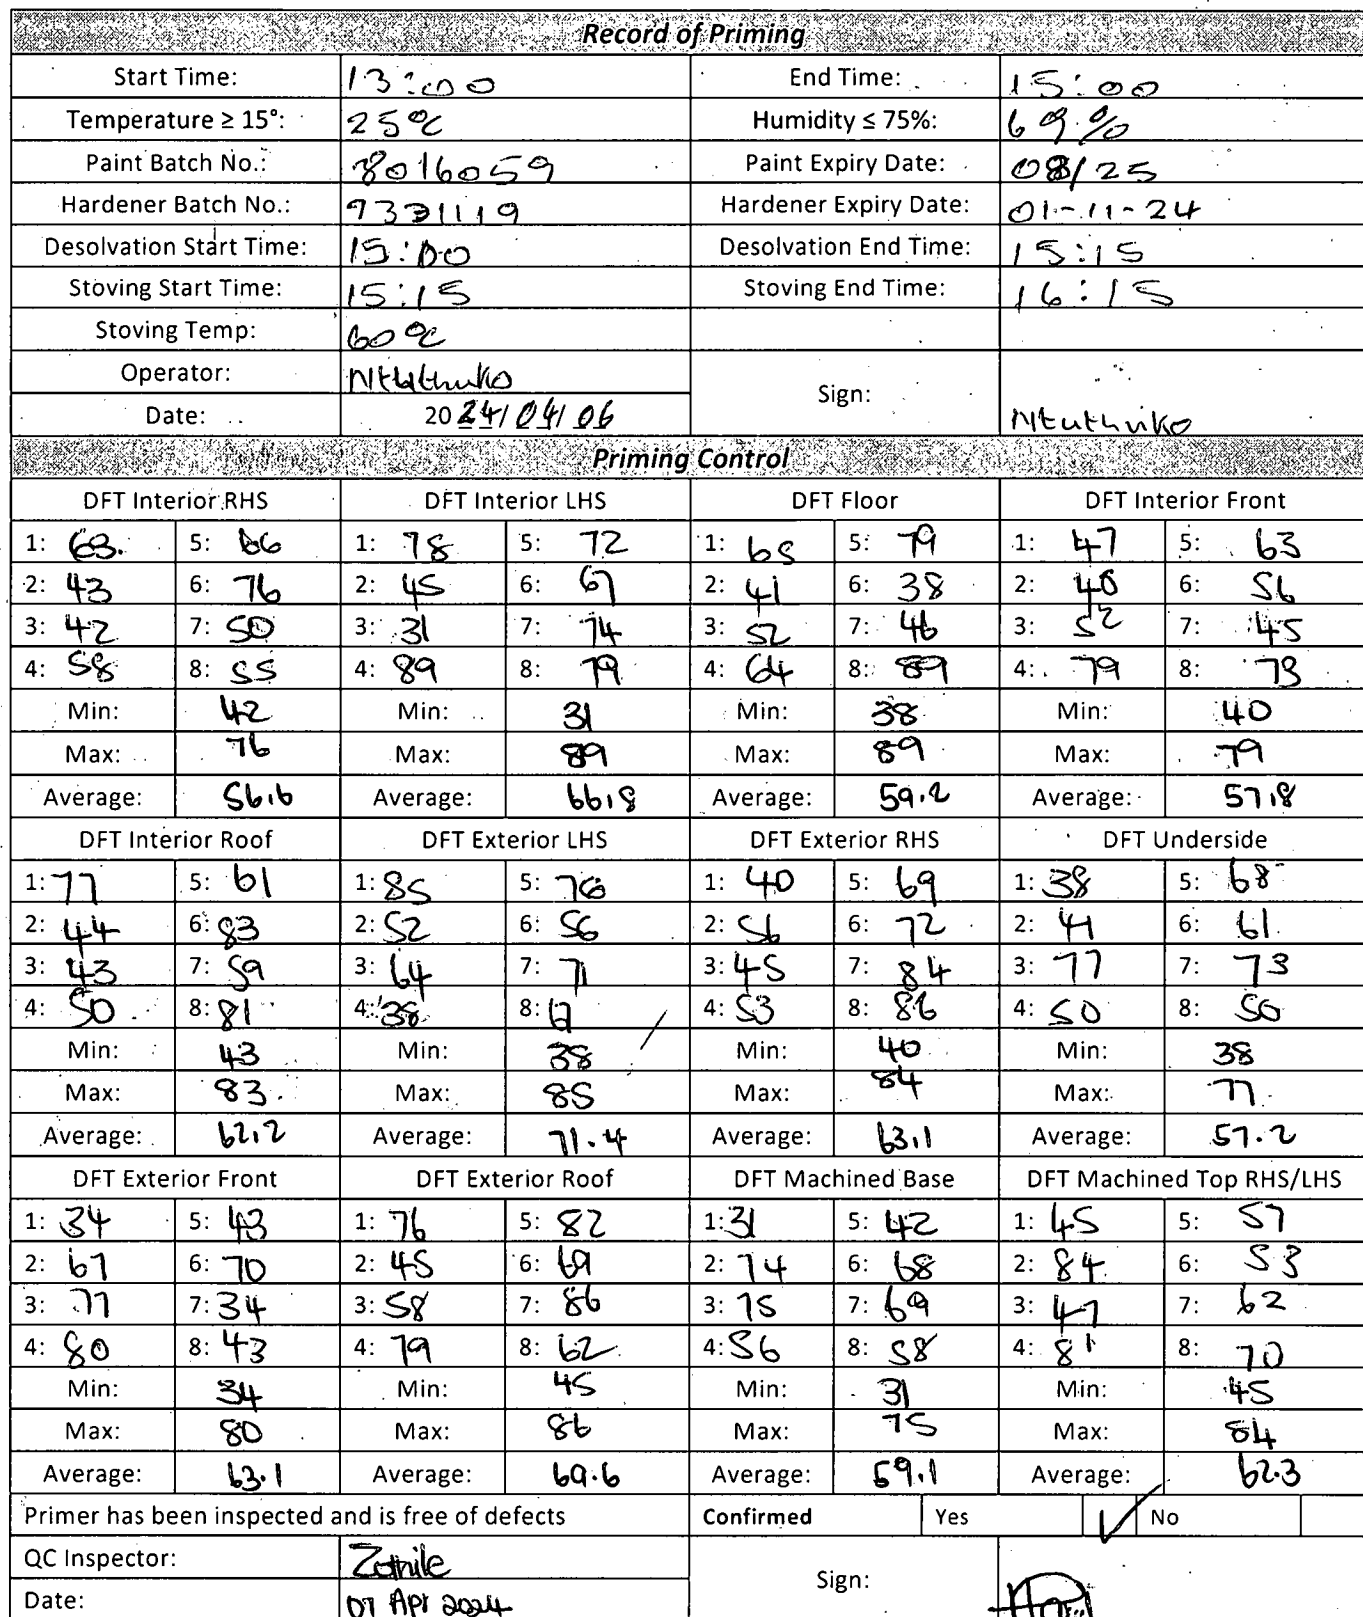 Record of Priming
Start Time: 13:00 End Time: 15:00
Temperature ≥ 15°: 25°C Humidity ≤ 75%: 69%
Paint Batch No.: 8016059 Paint Expiry Date: 08/25
Hardener Batch No.: 9331119 Hardener Expiry Date: 01-11-24
Desolvation Start Time: 15:00 Desolvation End Time: 15:15
Stoving Start Time: 15:15 Stoving End Time: 16:15
Stoving Temp: 60°C
Operator: Ntuthuko Sign: Ntuthuko
Date: 2024/04/06
Priming Control
DFT Interior RHS DFT Interior LHS DFT Floor DFT Interior Front
1: 63. 5: 66 1: 78 5: 72 1: 65 5: 79 1: 47 5: 63
2: 43 6: 76 2: 45 6: 67 2: 41 6: 38 2: 40 6: 56
3: 42 7: 50 3: 31 7: 74 3: 52 7: 46 3: 52 7: 45
4: 58 8: 55 4: 89 8: 79 4: 64 8: 89 4: 79 8: 73
Min: 42 Min: 31 Min: 38 Min: 40
Max: 76 Max: 89 Max: 89 Max: 79
Average: 56.6 Average: 66.8 Average: 59.2 Average: 57.8
DFT Interior Roof DFT Exterior LHS DFT Exterior RHS DFT Underside
1: 77 5: 61 1: 85 5: 76 1: 40 5: 69 1: 38 5: 68
2: 44 6: 83 2: 52 6: 56 2: 56 6: 72 2: 41 6: 61
3: 43 7: 59 3: 64 7: 71 3: 45 7: 84 3: 77 7: 73
4: 50 8: 81 4: 38 8: 4: 53 8: 86 4: 50 8: 50
Min: 43 Min: 38 Min: 40 Min: 38
Max: 83 Max: 85 Max: 84 Max: 77
Average: 62.2 Average: 71.4 Average: 63.1 Average: 57.2
DFT Exterior Front DFT Exterior Roof DFT Machined Base DFT Machined Top RHS/LHS
1: 34 5: 43 1: 76 5: 82 1: 31 5: 42 1: 45 5: 57
2: 67 6: 70 2: 45 6: 69 2: 74 6: 68 2: 84 6: 53
3: 77 7: 34 3: 58 7: 86 3: 75 7: 69 3: 47 7: 62
4: 80 8: 43 4: 79 8: 62 4: 56 8: 58 4: 81 8: 70
Min: 34 Min: 45 Min: 31 Min: 45
Max: 80 Max: 86 Max: 75 Max: 84
Average: 63.1 Average: 69.6 Average: 59.1 Average: 62.3
Primer has been inspected and is free of defects Confirmed Yes ✓ No
QC Inspector: Zothile Sign:
Date: 07 Apr 2024